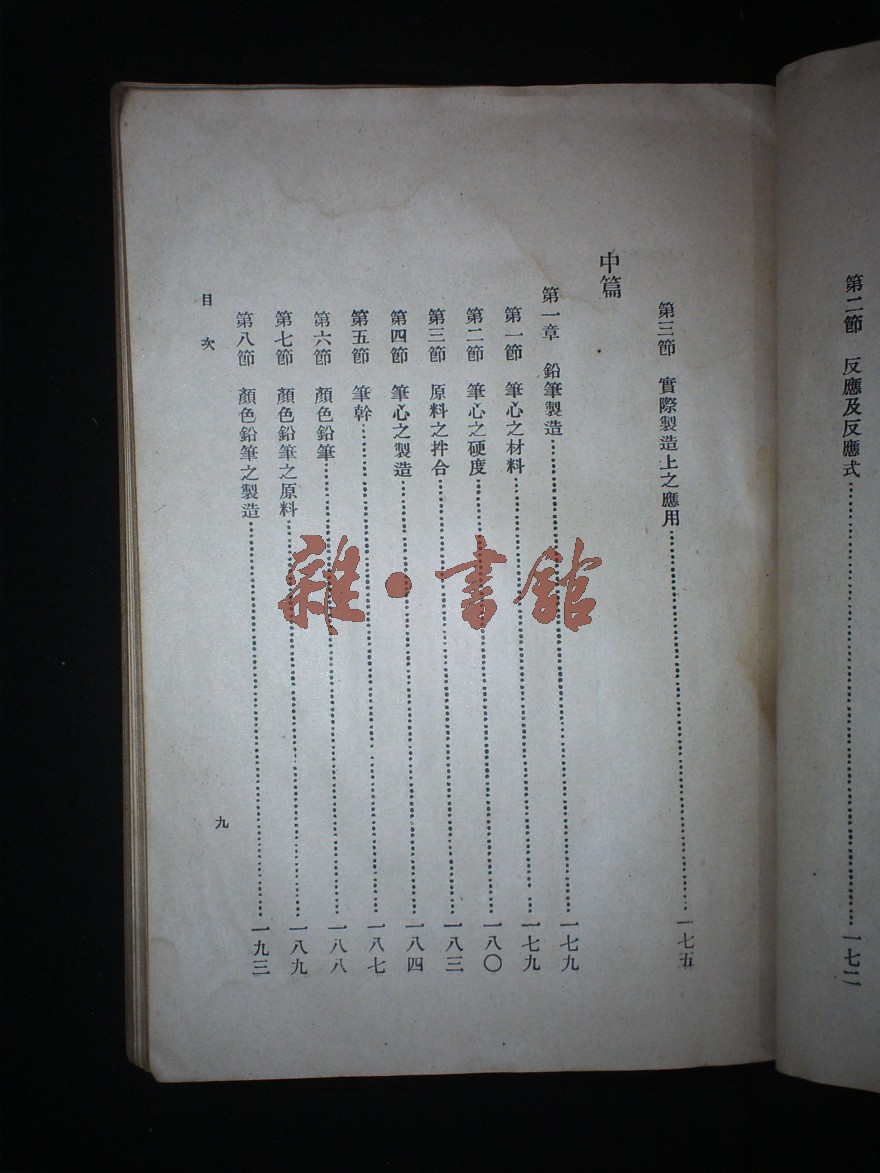 第二節　反應及反應式……一七二
第三節　實際製造上之應用……一七五
中篇
第一章　鉛筆製造……一七九
第一節　筆心之材料……一七九
第二節　筆心之硬度……一八〇
第三節　原料之拌合……一八三
第四節　筆心之製造……一八四
第五節　筆幹……一八七
第六節　顏色鉛筆……一八八
第七節　顏色鉛筆之原料……一八九
第八節　顏色鉛筆之製造……一九三
目次
九
雜·書館